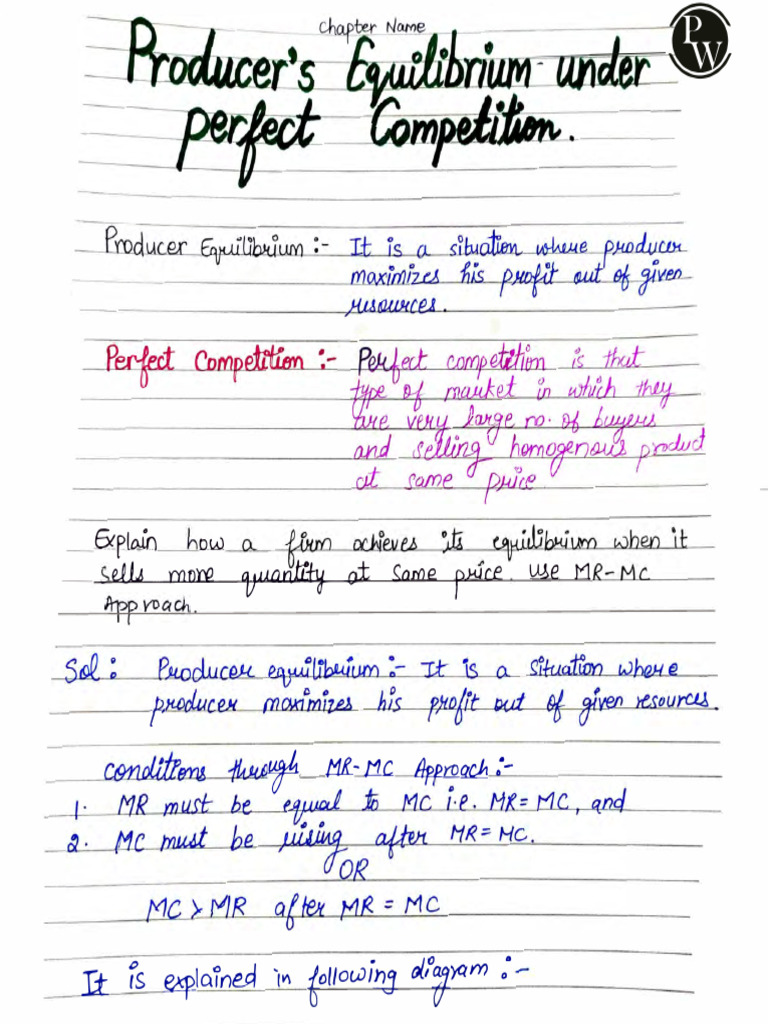 Chapter Name
PW
Producer's Equilibrium under
perfect Competition.
Producer Equilibrium :- It is a situation where producer
maximizes his profit out of given
resources.
Perfect Competition :- Perfect competition is that
type of market in which they
are very large no. of buyers
and selling homogenous product
at same price
Explain how a firm achieves its equilibrium when it
sells more quantity at same price. use MR-MC
Approach.
Sol: Producer equilibrium :- It is a situation where
producer maximizes his profit out of given resources.
conditions through MR-MC Approach :-
1. MR must be equal to MC i.e. MR = MC, and
2. MC must be rising after MR = MC.
OR
MC > MR after MR = MC
It is explained in following diagram :-